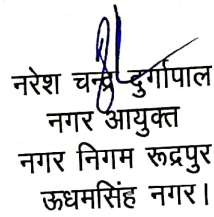 नरेश चन्द्र दुर्गापाल
नगर आयुक्त
नगर निगम रूद्रपुर
ऊधमसिंह नगर।